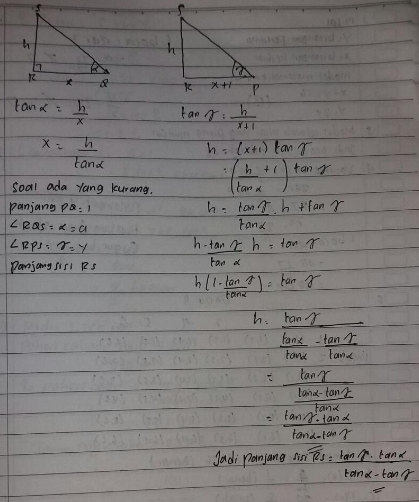 S
h
R
x
α
Q
S
h
R
x+1
γ
P
tan α = h/x
x = h/tan α
Soal ada yang kurang.
panjang PQ = 1
∠RQS = α = a
∠RPS = γ = y
panjang sisi RS
tan γ = h/(x+1)
h = (x+1) tan γ
= (h/tan α + 1) tan γ
h = tan γ/tan α . h + tan γ
h - tan γ/tan α h = tan γ
h (1 - tan γ/tan α) = tan γ
h = tan γ/(tan α/tan α - tan γ/tan α)
= tan γ/((tan α - tan γ)/tan α)
= tan γ . tan α/(tan α - tan γ)
Jadi panjang sisi RS = tan γ . tan α/(tan α - tan γ)